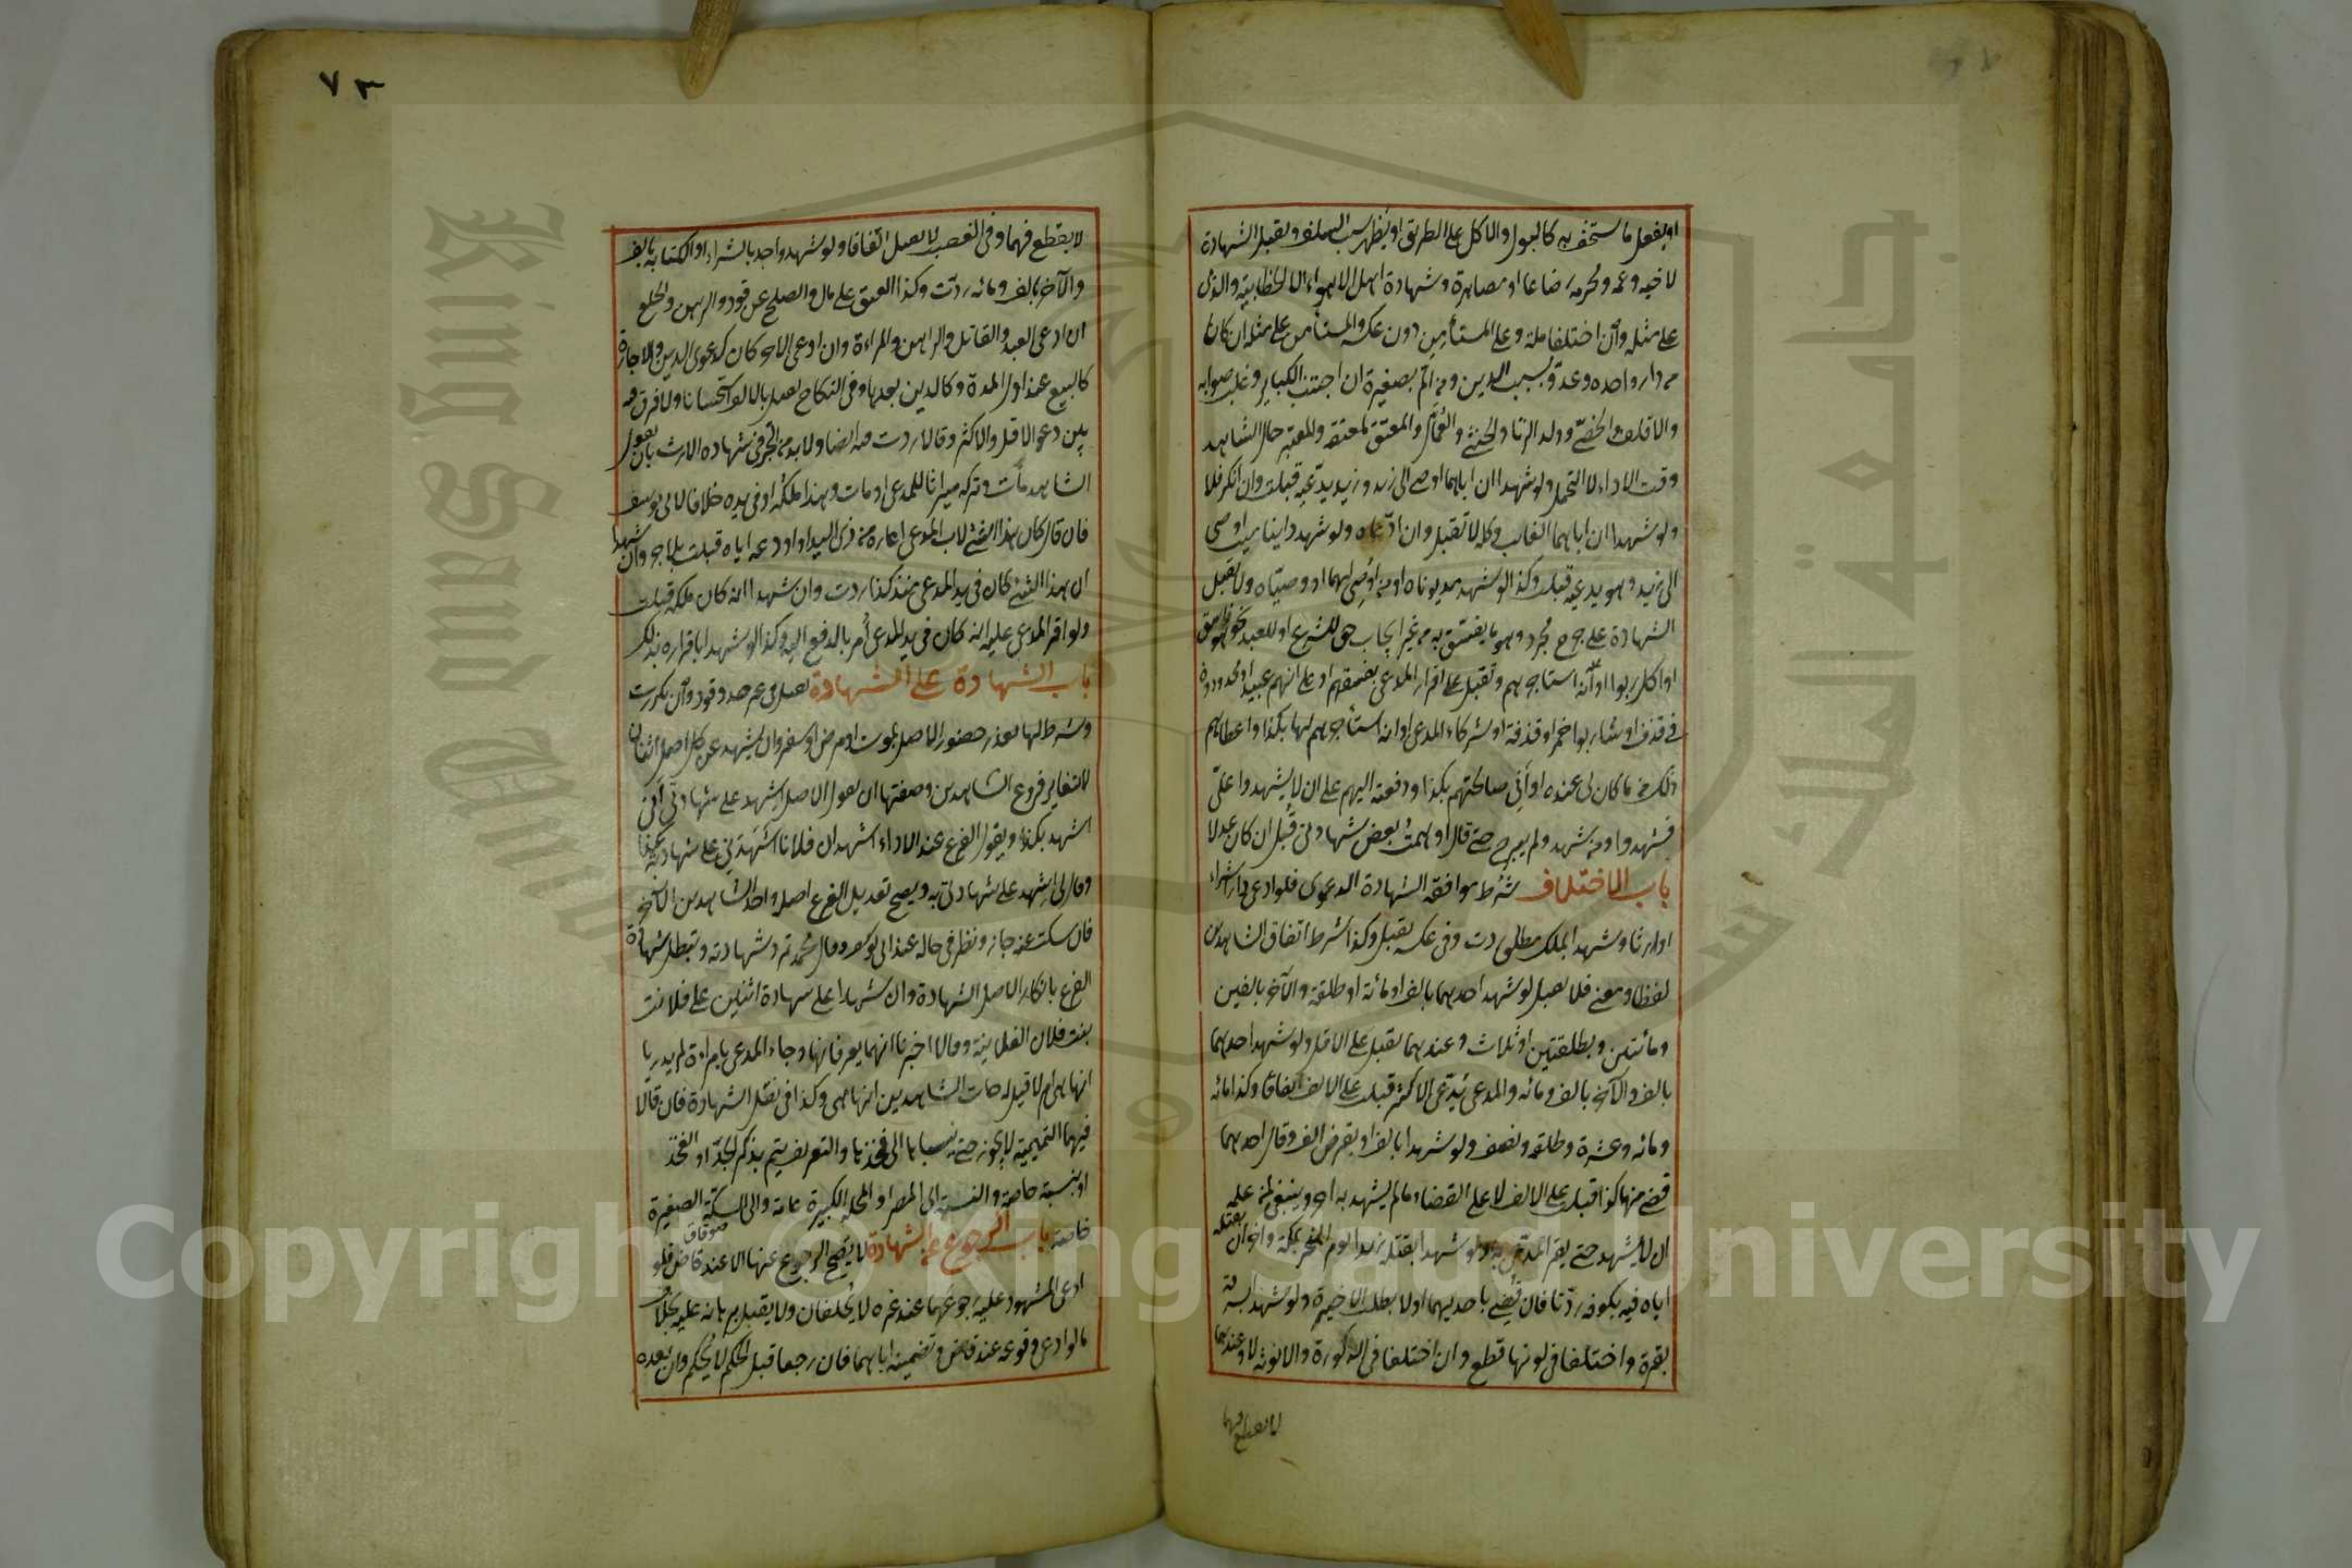 او يفعل ما يستخف به كالبول والاكل على الطريق او يظهر سب السلف ويقبل الشهادة
لاخيه وعمه ومحرمه رضاعا او مصاهرة وشهادة اهل الاهواء الا الخطابية والذمى
على مثله وان اختلفا ملة وعلى المستأمن دون عكسه والمستأمن على مثله ان كانا
من دار واحده وعدو بسبب الدين ومن الم بصغيرة ان اجتنب الكباير وغلب صوابه
والاقلف والخصى وولد الزنا والخنثى والعمال والمعتق لمعتقه والمعتبر حال الشاهد
وقت الاداء لا التحمل ولو شهدا ان اباهما اوصى الى زيد وزيد يدعيه قبلت وان انكر فلا
ولو شهدا ان اباهما الغايب وكله لا تقبل وان ادعاه ولو شهد داينا ميت اوصى
الى زيد وهو يدعيه قبلت وكذا لو شهد مديوناه او من اوصى لهما او وصياه ولا تقبل
الشهادة على جرح مجرد وهو ما يفسق به من غير ايجاب حق للشرع او للعبد نحو هو فاسق
او اكل ربوا او انه استاجرهم وتقبل على اقرار المدعى بفسقهم او على انهم عبيد او محدودون
فى قذف او شاربوا خمر او قذفة او شركاء المدعى او انه استأجرهم لها بكذا واعطاهم
ذلك مما كان لى عنده او انى صالحتهم بكذا ودفعته اليهم على ان لا يشهدوا على
فشهدوا ومن شهد ولم يبرح حتى قال اوهمت بعض شهادتى قبل ان كان عدلا
باب الاختلاف شرط موافقة الشهادة الدعوى فلو ادعى دارا شراء
او ارثا وشهدا بملك مطلق ردت وفى عكسه يقبل وكذا شرط اتفاق الشاهدين
لفظا ومعنى فلا يقبل لو شهد احدهما بالف او مائة او طلقة والآخر بالفين
ومائتين وبطلقتين او ثلاث وعندهما يقبل على الاقل ولو شهد احدهما
بالف والآخر بالف ومائه والمدعى يدعى الاكثر قبلت على الالف اتفاقا وكذا مائه
ومائه وعشرة وطلقه ونصف ولو شهدا بالف او بقرض الف وقال احدهما
قضى منها كذا قبلت على الالف لا على القضاء ما لم يشهد به اخر وينبغى لمن علمه
ان لا يشهد حتى يقر المدعى به ولو شهدا بقتله زيدا يوم النحر بمكة واخران بقتله
اياه فيه بكوفه ردتا فان قضى باحديهما اولا بطلت الاخيرة ولو شهدا بسرقة
بقرة واختلفا فى لونها قطع وان اختلفا فى الذكورة والانوثه لا وعندهما
لا يقطع فيهما
٧٣
لا يقطع فيهما وفى الغصب لا يقبل اتفاقا ولو شهد واحد بالشراء او الكتابه بالف
والآخر بالف ومائه ردت وكذا العتق على مال والصلح عن قود والرهن والخلع
ان ادعى العبد والقاتل والراهن والمراءة وان ادعى الاخر كان كدعوى الدين والاجارة
كالبيع عند اول المدة وكالدين بعدها وفى النكاح يقبل بالالف استحسانا ولا فرق فيه
بين دعوى الاقل والاكثر وقالا ردت فيه ايضا ولا بد من الجر فى شهاده الارث بان يقول
الشاهد مات وتركه ميراثا للمدعى او مات وهذا ملكه او فى يده خلافا لابى يوسف
فان قال كان هذا الشئ لاب المدعى اعاره من ذى اليد او اودعه اياه قبلت بلا جر وان شهدا
ان هذا الشئ كان فى يد المدعى منذ كذا ردت وان شهدا انه كان ملكه قبلت
ولو اقر المدعى عليه انه كان فى يد المدعى أمر بالدفع اليه وكذا لو شهدا باقراره بذلك
باب الشهادة على الشهادة يقبل فى غير حد وقود وان تكررت
وشرط لها تعذر حضور الاصل بموت او مرض او سفر وان يشهد عن كل اصل اثنان
لا تغاير فرعى الشاهدين وصفتها ان يقول الاصل اشهد على شهادتى انى
اشهد بكذا ويقول الفرع عند الاداء اشهد ان فلانا اشهدنى على شهادته بكذا
وقال لى اشهد على شهادتى به ويصح تعديل الفرع اصله واحد الشاهدين الآخر
فان سكت عنه جاز ونظر فى حاله عند ابى يوسف وقال محمد ترد شهادته وتبطل شهادة
الفرع بانكار الاصل الشهادة وان شهدا على شهادة اثنين على فلانة
بنت فلان الفلانية وقالا اخبرنا انهما يعرفانها وجاء المدعى بامراءة لم يدريا
انها هى ام لا قيل له هات الشاهدين انها هى وكذا فى نقل الشهادة فان قالا
فيهما التميمية لا يجوز حتى ينسباها الى فخذها والتعريف يتم بذكر الجد او الفخذ
او بنسبة خاصة والنسبة الى المصر او المحلة الكبيرة عامة والى السكة الصغيرة
خاصة باب الرجوع عن الشهادة لا يصح الرجوع عنها الا عند قاض فلو
ادعى المشهود عليه رجوعهما عند غيره لا يحلفان ولا يقبل برهانه عليه بخلاف
ما لو ادعى وقوعه عند قاض وتضمينه اياهما فان رجعا قبل الحكم لا يحكم وان بعده
Copyright © King Saud University
King Saud University